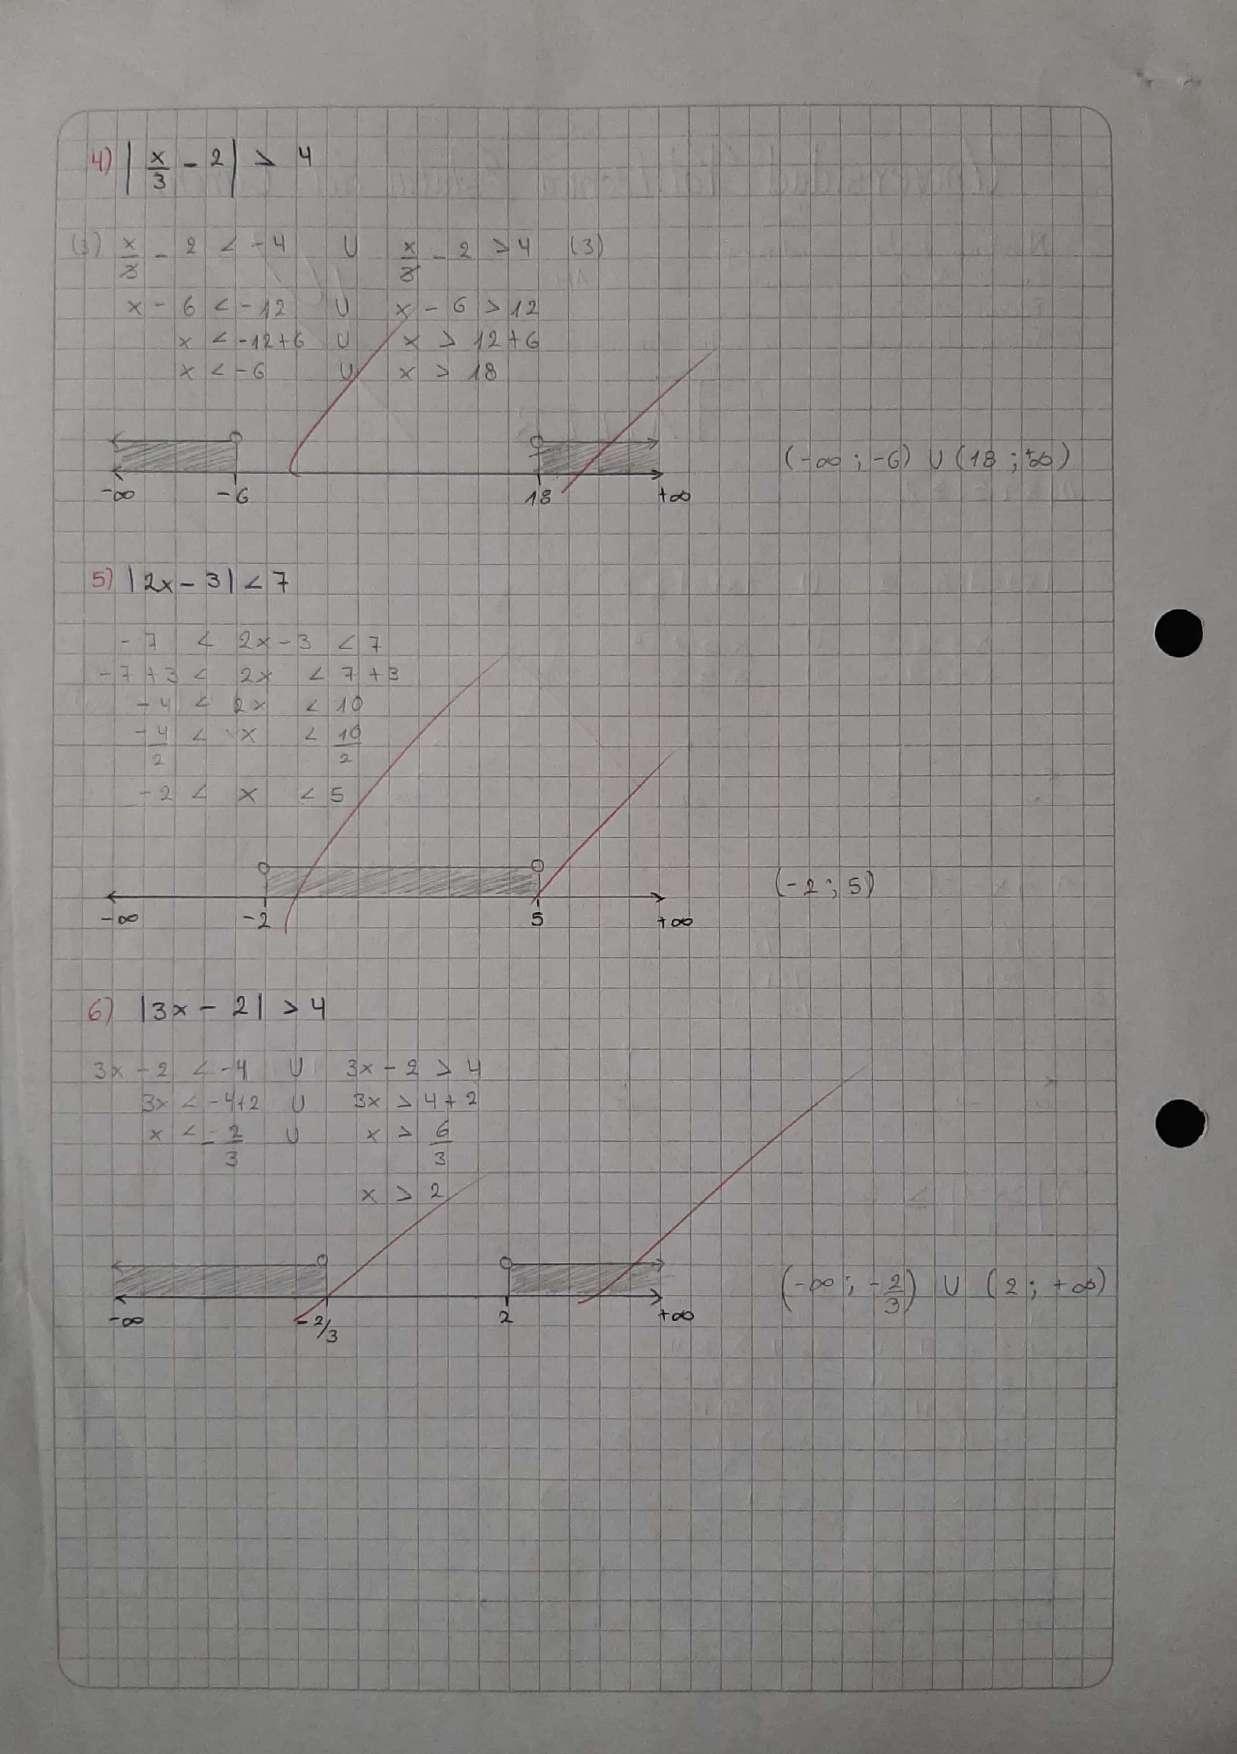 4) | x/3 - 2 | > 4
(3) x/3 - 2 < -4 U x/3 - 2 > 4 (3)
x - 6 < -12 U x - 6 > 12
x < -12+6 U x > 12+6
x < -6 U x > 18
-∞ -6 18 +∞
(-∞ ; -6) U (18 ; +∞)
5) |2x - 3| < 7
-7 < 2x - 3 < 7
-7+3 < 2x < 7+3
-4 < 2x < 10
-4/2 < x < 10/2
-2 < x < 5
-∞ -2 5 +∞
(-2 ; 5)
6) |3x - 2| > 4
3x - 2 < -4 U 3x - 2 > 4
3x < -4+2 U 3x > 4+2
x < -2/3 U x > 6/3
x > 2
-∞ -2/3 2 +∞
(-∞ ; -2/3) U (2 ; +∞)